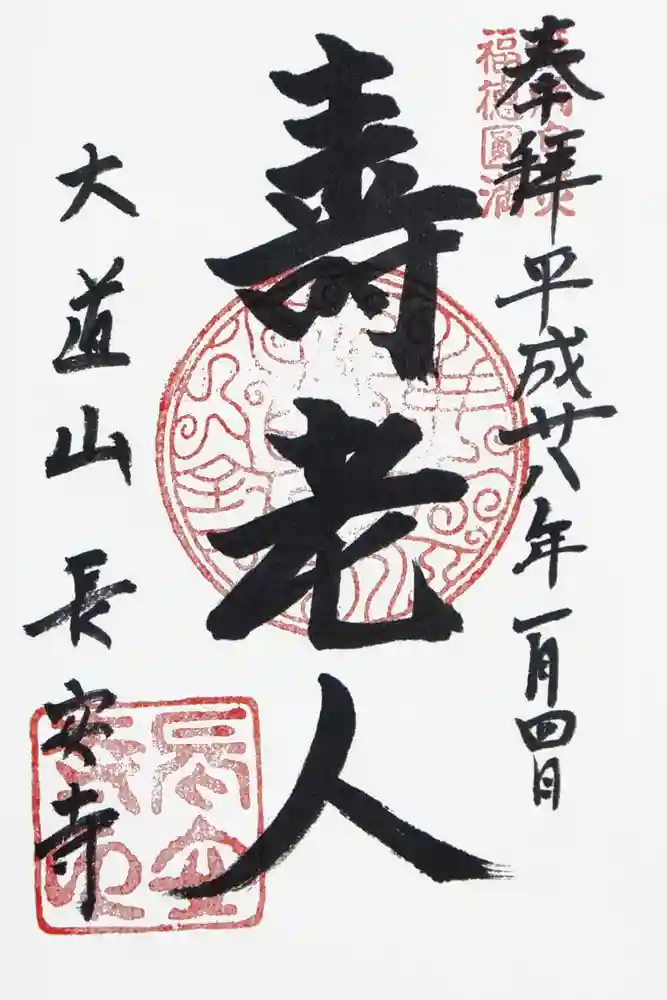 奉拝 平成廿八年一月四日
福徳圓満
壽老人
大道山 長安寺